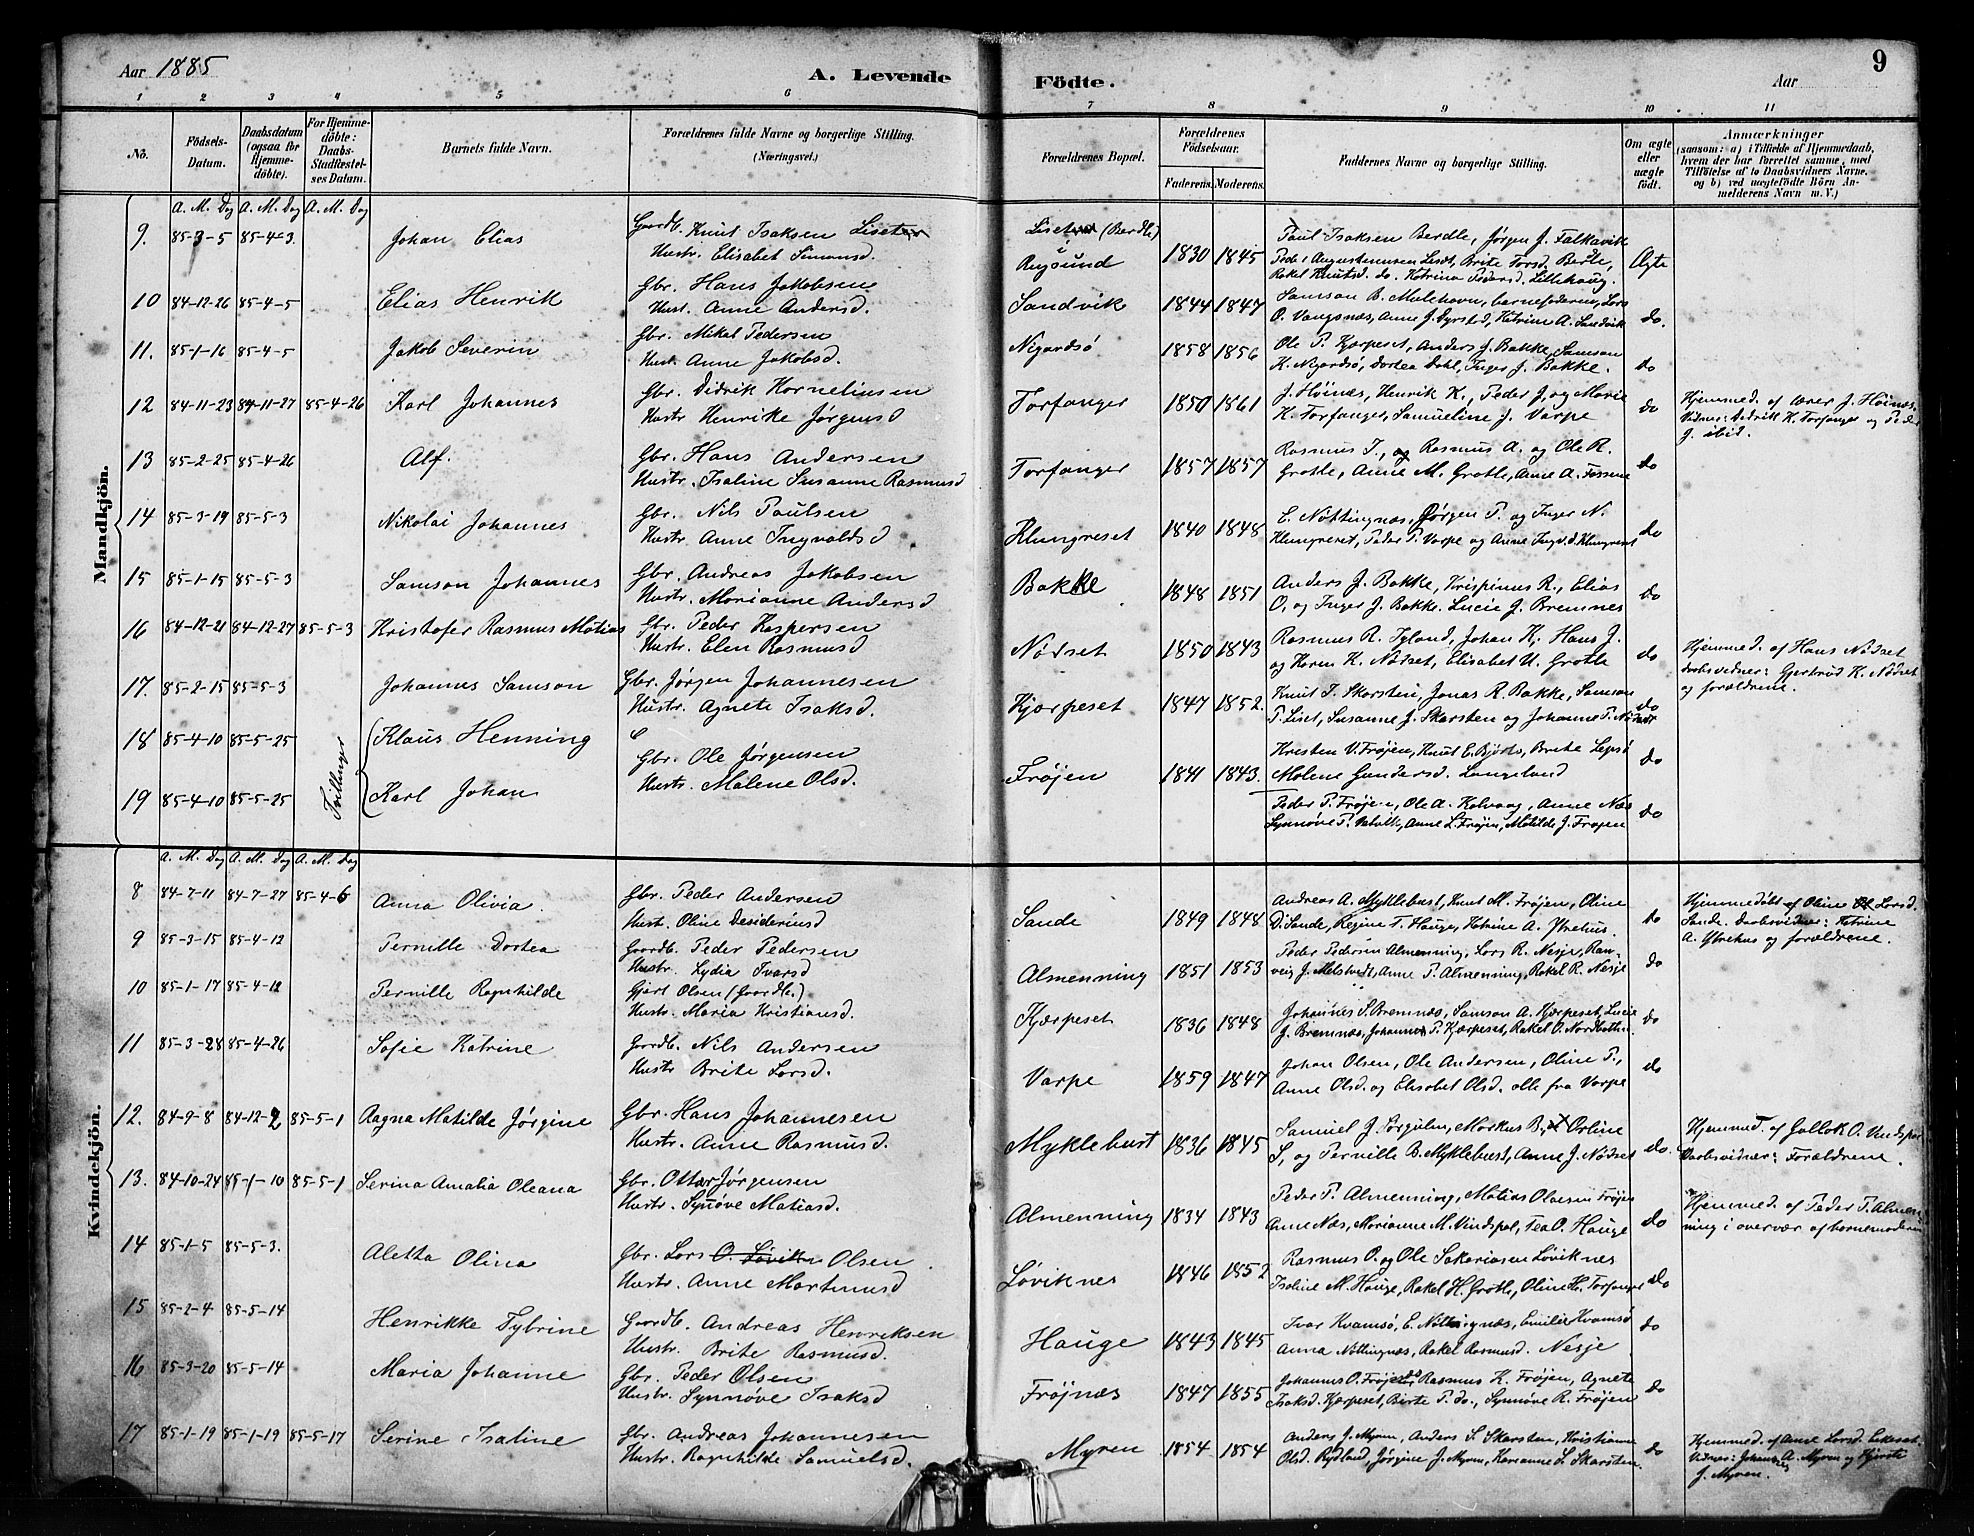 Aar 1885
A. Levende
Födte.
Aar
9
1 2 3 4 5 6 7 8 9 10 11
No.
Födsels-Datum.
Daabsdatum (ogsaa for Hjemme-döbte).
For Hjemme-döbte: Daabs-Stadfæstel-ses Datum.
Barnets fulde Navn.
Forældrenes fulde Navne og borgerlige Stilling. (Næringsvei.)
Forældrenes Bopæl.
Forældrenes Födselsaar.
Faderens. Moderens.
Faddernes Navne og borgerlige Stilling.
Om ægte eller uægte födt.
Anmærkninger
(saasom: a) i Tilfælde af Hjemmedaab,
hvem der har forrettet samme, med
Tilföielse af to Daabsvidners Navne,
og b) ved uægtefödte Börn An-
melderens Navn m. V.)
Mandkjön.
A. M. Dag A. M. Dag A. M. Dag
9. 85-3-5 85-4-3. Johan Elias
Gaardb. Knut Isaksen
Hustr. Elisabet Simonsd.
(Berdle) i Rugsund 1830 1845
Paul Isaksen Berdle, Jørgen J. Falkavik
Brite Torsd. Berdle,
Rakel Knutsd. do. Katrina Pedersd. Lillehaug.
Ægte
10 84-12-26 85-4-5 Elias Henrik
Gbr. Hans Jakobsen
Hust. Anne Andersd.
Sandvik 1844 1847
Samson B. Mulehavn, barnefaderen, Lars
O. Vangsnæs, Anne J. Dyrstad, Katrine A. Sandvik
do.
11. 85-1-16 85-4-5 Jakob Severin
Gbr. Mikal Pedersen
Hust. Anne Jakobsd.
Nigardsø 1858 1856
Ole P. Kjærpeset, Anders J. Bakke, Samson
K. Nigardsø, Dortea Dahl, Inger J. Bakke.
do
12 84-11-23 84-11-27 85-4-26 Karl Johannes
Gbr. Didrik Kornelius­en
Hustr Henrike Jørgensd
Torfanger 1850 1861
J. Høinæs, Henrik K., Peder J. og Marie
K. Torfanger, Samueline J. Varpe
do
Hjemmed. af lærer J. Høinæs.
Vidner: Didrik K. Torfanger og Peder
J. ibid.
13 85-2-25 85-4-26 Alf.
Gbr. Hans Andersen
Hustr. Isaline Susanne Rasmusd
Torfanger 1857 1857
Rasmus I., og Rasmus A. og Ole R.
Grotle, Anne M. Grotle, Anne A.
do
14 85-3-19 85-5-3 Nikolai Johannes
Gbr. Nils Paulsen
Hustr. Anne Ingvaldsd
Klungreset 1840 1848
E. Nøttingnæs, Jørgen P. og Inger N.
Klungreset, Peder P. Varpe og Anne Ingv.d. Klungreset
do
15 85-1-15 85-5-3 Samson Johannes
Gbr. Andreas Jakobsen
Hustr. Marianne Andersd
Bakke 1848 1851
Anders J. Bakke, Krispinus R., Elias
O, og Inger J. Bakke. Lucie J. Bremnes
do
16 84-12-21 84-12-27 85-5-3 Kristofer Rasmus Matias
Gbr. Peder Kaspersen
Hustr. Elen Rasmusd
Nødset 1850 1843
Rasmus R. Igland, Johan K. Hans J.
og Karen K. Nødset, Elisabet U. Grotle
do
Hjemmed. af Hans Nødset
daabsvidner: Gjertrud K. Nødset
og forældrene.
17. 85-2-15 85-5-3 Johannes Samson
Gbr. Jørgen Johannesen
Hustr. Agnete Isaksd.
Kjærpeset 1847 1852.
Knut T. Skarsten, Jonas R. Bakke, Samson
P. Liset, Susanne J. Skarsten og Johanne P. Nødset
do
Tvillinger
18 85-4-10 85-5-25 Klaus Henning
19 85-4-10 85-5-25 Karl Johan
Gbr. Ole Jørgensen
Hustr. Malene Olsd.
Frøjen 1841 1843.
Kristen V. Frøjen, Knut E. Brite Lepsø
Malene Gundersd. Langeland
do
Peder P. Frøjen, Ole A. Kalvaag, Anne Næs
Synnøve P. Anne L. Frøjen, Matilde J. Frøjen
do
Kvindekjön.
A. M. Dag A. M. Dag A. M. Dag
8 84-7-11 84-7-27 85-4-6 Anna Olivia.
Gbr. Peder Andersen
Hust. Oline Desideriusd
Sande 1849 1848
Andreas A. Myklebust, Knut M. Frøjen, Oline
D. Sande, Regine T. Hauge, Katrine A. Ytrehus.
do
Hjemmedøbt af Oline Larsd.
Sande. Daabsvidner: Katrine
A. Ytrehus og forældrene.
9 85-3-15 85-4-12 Pernille Dortea
Gaardb. Peder Pedersen
Hustr. Lydia Ivarsd
Almenning 1851 1853
Peder Pedersen Almenning, Lars R. Nesje, Ran-
veig J. Anne P. Almenning, Rakel R. Nesje
do
10 85-1-17 85-4-12 Pernille Ragnhilde
Gjert Olsen (Gaardb.)
Hustr. Maria Kristiansd.
Kjærpeset 1836 1848
Johannes S. Bremnæs, Samson A. Kjærpeset, Lucie
J. Bremnæs, Johanne P. Kjærpeset, Rakel O.
do
11 85-3-28 85-4-26 Sofie Katrine
Gaardb. Nils Andersen
Hustr Brite Larsd.
Varpe 1859 1847
Johan Olsen, Ole Andersen, Oline P.,
Anne Olsd. og Elisabet Olsd. alle fra Varpe
do
12. 84-9-8 84-12-2 85-5-1 Ragna Matilde Jørgine
Gbr. Hans Johannesen
Hustr. Anne Rasmusd.
Myklebust 1836 1845
Samuel J. Markus B, Orline
S, og Pernille B. Myklebust, Anne J. Nødset
do.
Hjemmed. af Gallok O. Vindspol
Daabsvidner: Forældrene.
13. 84-10-24 85-1-10 85-5-1 Serina Amalia Oleana
Gbr. Ottar Jørgensen
Hustr. Synøve Matiasd.
Almenning 1834 1843
Peder P. Almenning, Matias Olaisen Frøjen
Anne Næs, Marianne M. Vindspol, Tea O. Hauge
do
Hjemmed. af Peder P. Almen-
ning i overvær af barnemoderen
14 85-1-5 85-5-3. Aletta Olina
Gbr. Lars O. Løvikn Olsen
Hustr. Anne Martinusd
Løviknes 1846 1852
Rasmus O. og Ole Sakariasen Løviknes
Isaline M. Hauge, Rakel H. Grotle, Oline H. Torfanger
do
15 85-2-4 85-5-14 Henrikke Tybrine
Gaardb. Andreas Henriksen
Hustr. Brite Rasmusd.
Hauge 1843 1845
Ivar Kvamsø, E. Nøttingnæs, Emilie Kvamsø
Anna Nøttingnæs, Rakel Rasmusd. Nesje
do
16 85-3-20 85-5-14 Maria Johanne
Gbr. Peder Olsen
Hustr. Synnøve Isaksd
Frøjnæs 1847 1855
Johannes O. Rasmus K. Frøjen, Agnete
Isaksd. Kjærpeset, Birte P. do., Synnøve R. Frøjen
do
17 85-1-19 85-1-19 85-5-17 Serine Isaline
Gbr. Andreas Johannesen
Hustr. Ragnhilde Samuelsd.
Myren 1854 1854
Anders J. Myren, Anders S. Skarsten, Kristianne
Olsd. Rydland, Jørgine J. Myren, Karianne S. Skarsten.
do
Hjemmed. af Anne Larsd.
Vidner: Johannes A. Myren og
J. Myren.